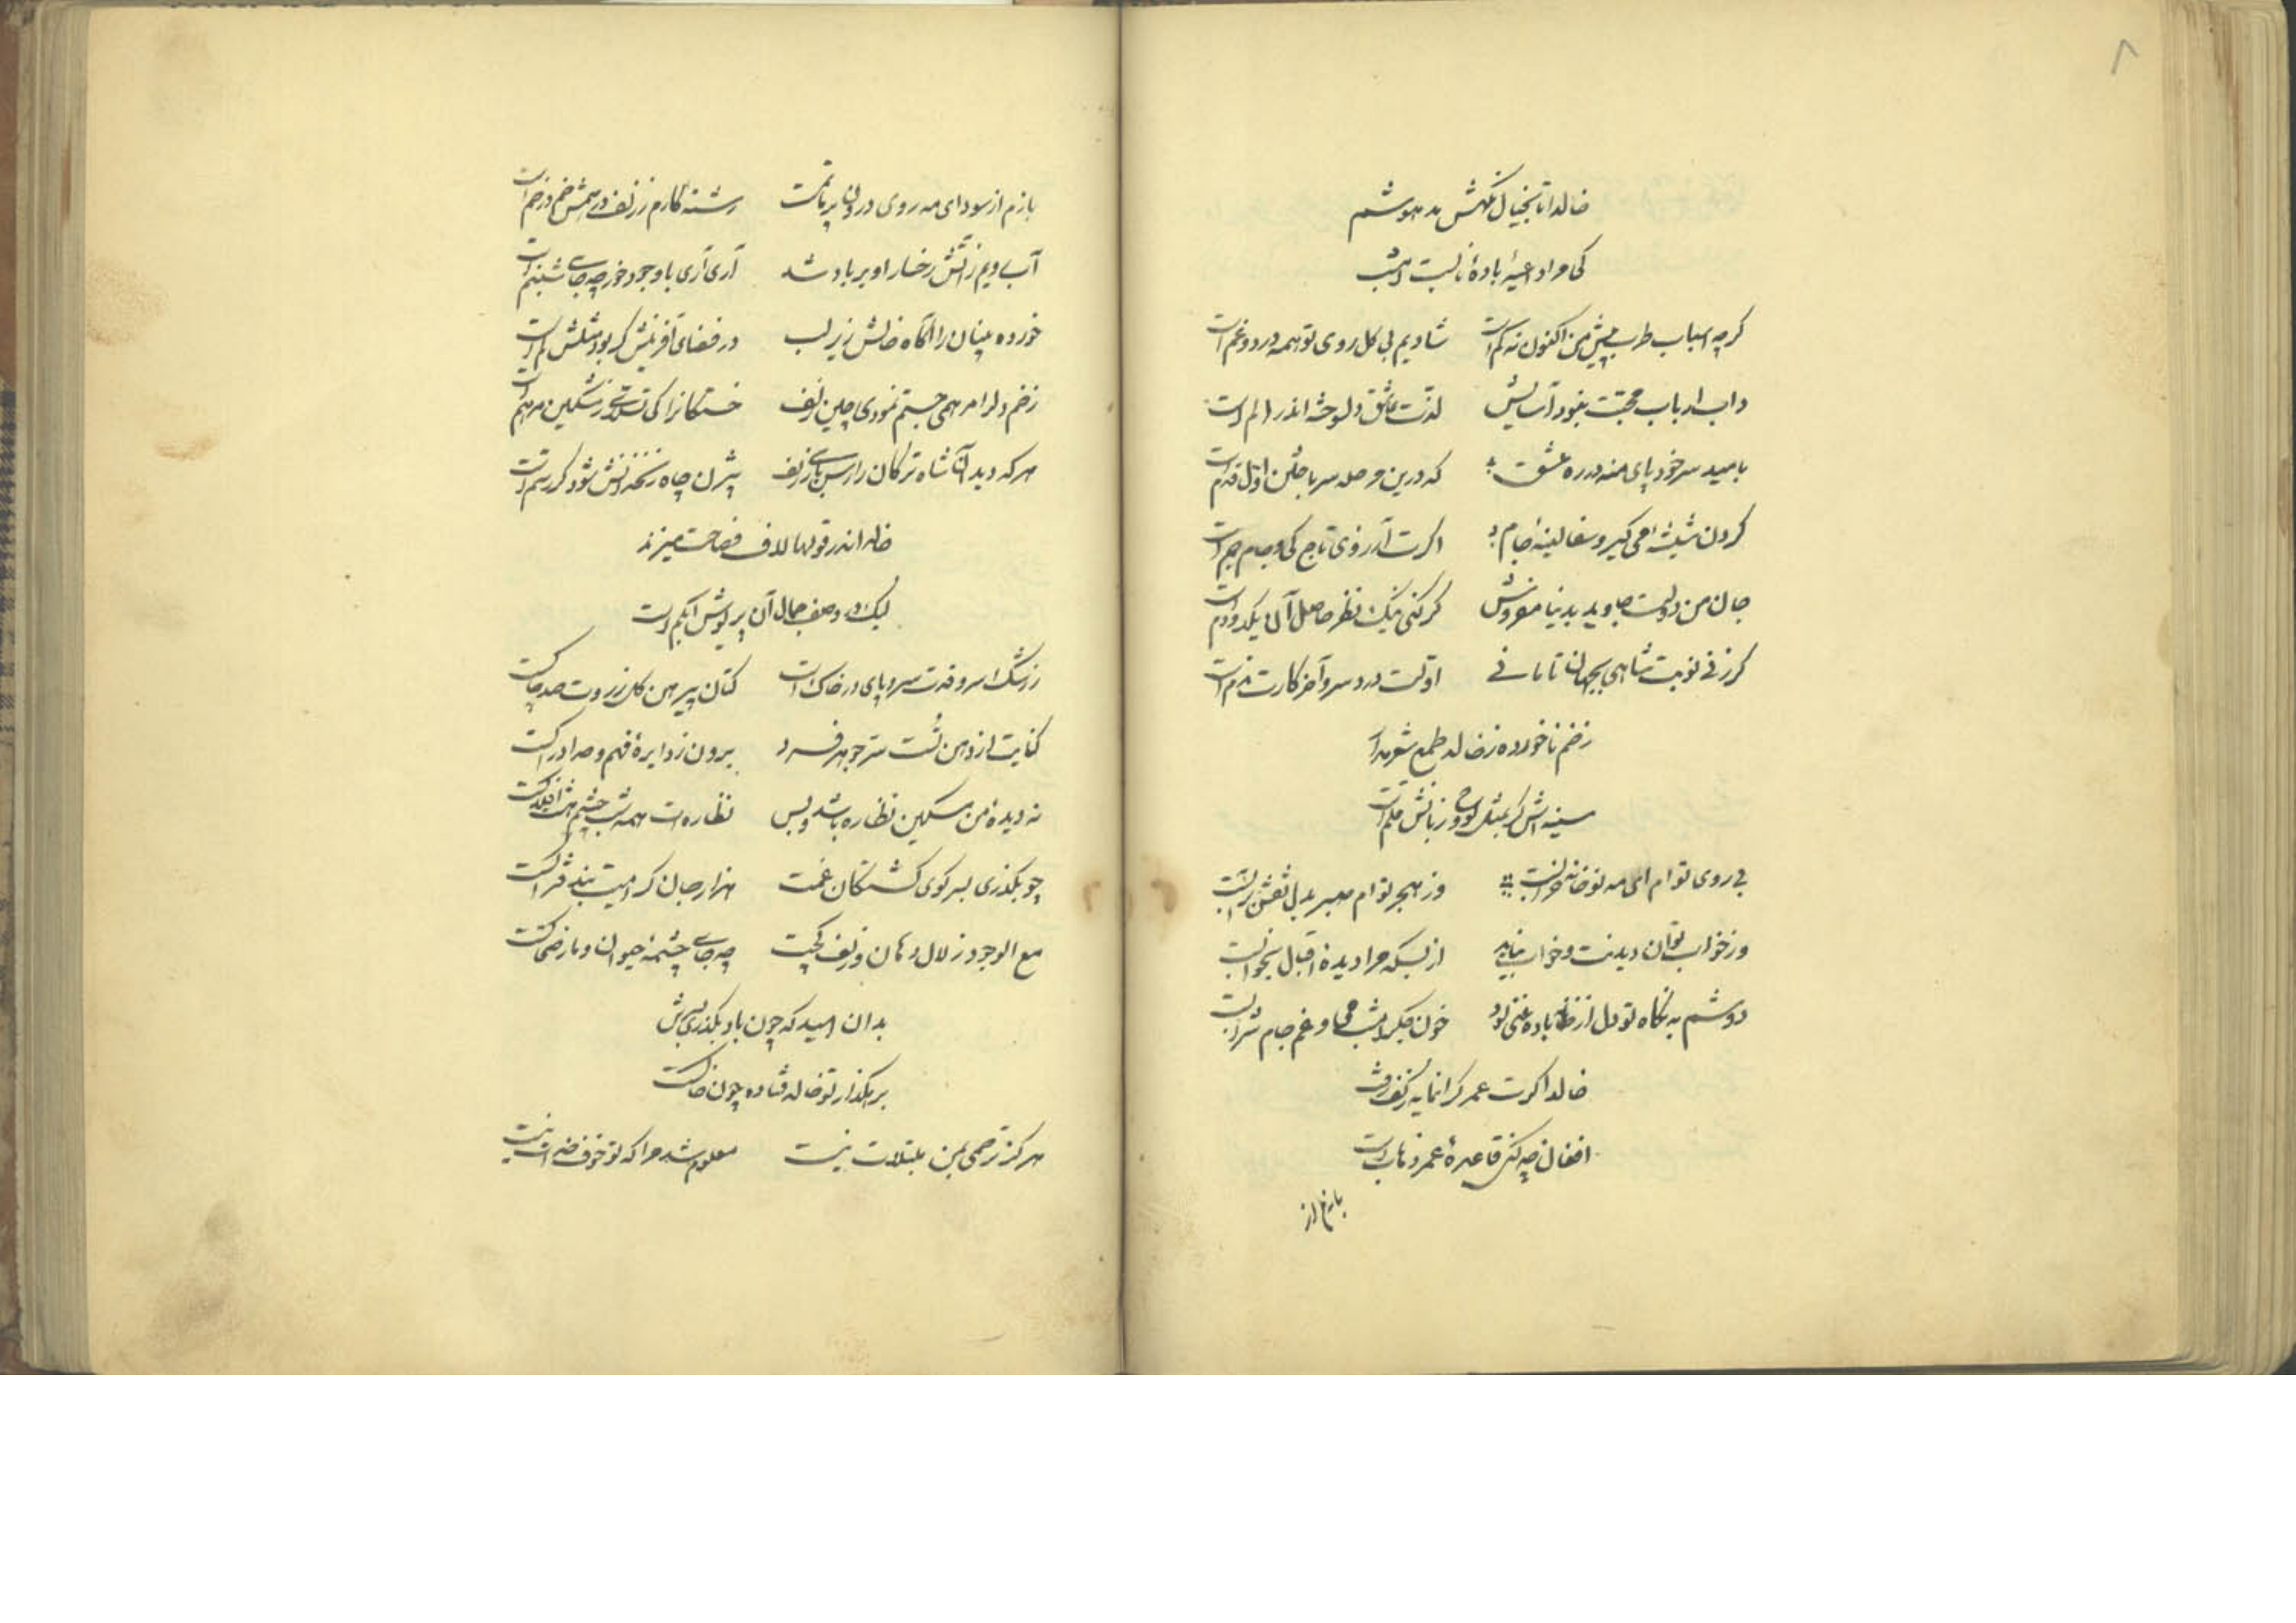 ۸
خالدا تا بخیال نگهش مدهوشم
کی مرا داعیهٔ بادهٔ نابست امشب
کرچه اسباب طرب پیش من اکنون نه کم است شادیم بی کل روی تو همه درد و غم است
داب ارباب محبت نبود آسایش لذت عاشق دلسوخته اندر الم است
بامید سر خود پای منه در ره عشق که درین مرحله سر باختن اول قدم است
کردن شیشهٔ می کیر و سفالینهٔ جام اکرت آرزوی تاج کی و جام جم است
جان من دولت جاوید بدنیا مفروش کر کنی نیک نظر حاصل آن یکدو دم است
کر زنی نوبت شاهی بجهان تا مانی اولت درد سر و آخر کارت ندم است
زخم ناخورده ز خالد طمع شعر مدار
سینه‌اش کر بمثل لوح و زبانش قلم است
بی روی توام ای مه نو خانه خرابست وز هجر توام صبر بدل نقش بر آبست
وز خواب توان دیدنت و خواب نیاید از بسکه مرا دیدهٔ اقبال بخوابست
دوشم به نکاه تو دل از باده غنی بود خون جکر امشب می و غم جام شرابست
خالدا کرت عمر کرانمایه ز کف رفت
افغان چه کنی قاعدهٔ عمر ذهابست
بازم از
بازم از سودای مه روی درون پر ماتمست رشته کارم ز زلف درهمش خم در خم است
آب دیم ز آتش رخسار او بر باد شد آری آری با وجود خور چه جای شبنم است
خورده بینان را نکاه خالش زیر لب در فضای آفرینش کر بود مثلش کم است
زخم دلرا مرهمی جستم نمودی چین زلف خستکانرا کی تسلای ز مشکین مرهم است
هر که دید آن شاه ترکان را رسن بازی زلف بیژن چاه زنخدانش شود کر رستم است
خالد اندر قولها لاف فصاحت میزند
لیک در وصف جمال آن پریوش ابکم است
ز رشک سرو قدت سرو پای در خاک است کتان پیرهن کل ز روت صد چاکست
کنایت از دهن تست سر جوهر فرد برون ز دایرهٔ فهم و حد ادراکست
نه دیدهٔ من مسکین نظاره باشد و بس نظاره‌ات همه شب چشم هشت افلاکست
چو بکذری بسر کوی کشتکان غمت هزار جان کرامیت بند فتراکست
مع الوجود زلال دهان و زلف کجت چه جای چشمهٔ حیوان و مار ضحاکست
بدان امید که چون باد بکذری بسرش
برهکذار تو خالد فتاده چون خاکست
هرکز ترحمی بمن مبتلات نیست معلوم شد مرا که تو خوف خدات نیست